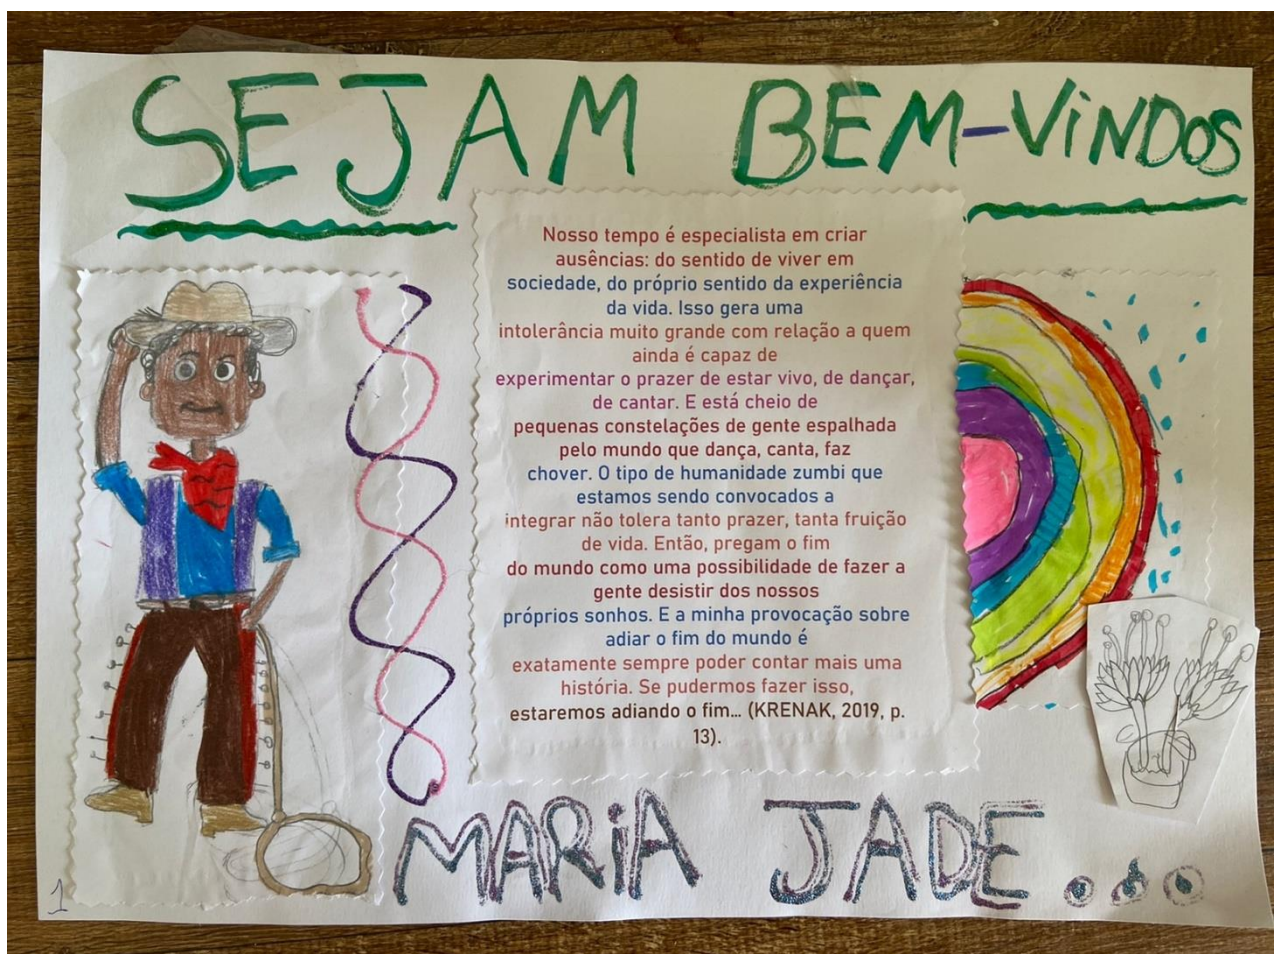 SEJAM BEM-ViNDOS
Nosso tempo é especialista em criar
ausências: do sentido de viver em
sociedade, do próprio sentido da experiência
da vida. Isso gera uma
intolerância muito grande com relação a quem
ainda é capaz de
experimentar o prazer de estar vivo, de dançar,
de cantar. E está cheio de
pequenas constelações de gente espalhada
pelo mundo que dança, canta, faz
chover. O tipo de humanidade zumbi que
estamos sendo convocados a
integrar não tolera tanto prazer, tanta fruição
de vida. Então, pregam o fim
do mundo como uma possibilidade de fazer a
gente desistir dos nossos
próprios sonhos. E a minha provocação sobre
adiar o fim do mundo é
exatamente sempre poder contar mais uma
história. Se pudermos fazer isso,
estaremos adiando o fim... (KRENAK, 2019, p.
13).
MARiA JADE...
1